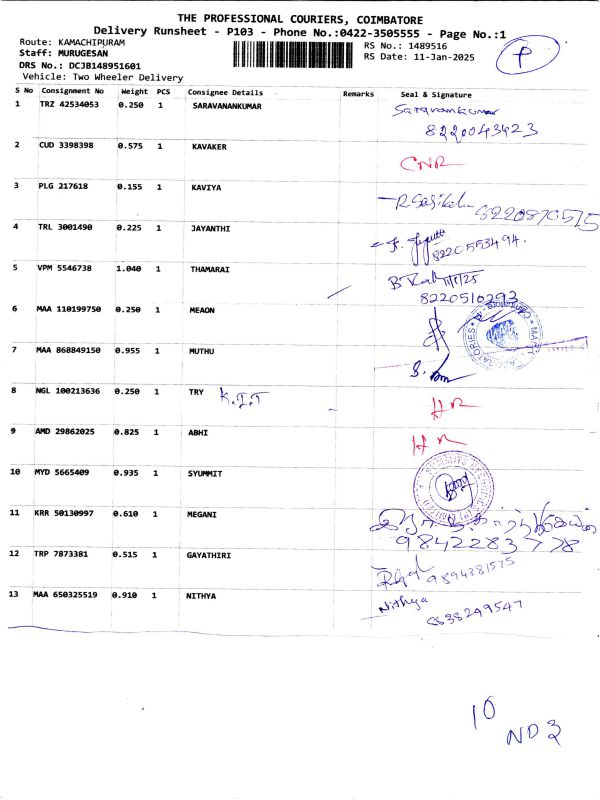 THE PROFESSIONAL COURIERS, COIMBATORE
Delivery Runsheet - P103 - Phone No.:0422-3505555 - Page No.:1
Route: KAMACHIPURAM
RS No.: 1489516
Staff: MURUGESAN
RS Date: 11-Jan-2025
P
DRS No.: DCJB148951601
Vehicle: Two Wheeler Delivery
S No Consignment No Weight PCS Consignee Details Remarks Seal & Signature
1 TRZ 42534053 0.250 1 SARAVANANKUMAR Saravankumar
8220043423
2 CUD 3398398 0.575 1 KAVAKER CNR
3 PLG 217618 0.155 1 KAVIYA
4 TRL 3001490 0.225 1 JAYANTHI
8220553494.
5 VPM 5546738 1.040 1 THAMARAI 11/1/25
8220510293
6 MAA 110199750 0.250 1 MEAON
7 MAA 868849150 0.955 1 MUTHU
8 NGL 100213636 0.250 1 TRY K.I.T HR
9 AMD 29862025 0.825 1 ABHI HR
10 MYD 5665409 0.935 1 SYUMMIT
11 KRR 50130997 0.610 1 MEGANI
9842283778
12 TRP 7873381 0.515 1 GAYATHIRI 9894381575
13 MAA 650325519 0.910 1 NITHYA Nithya
8838249547
10
ND 3